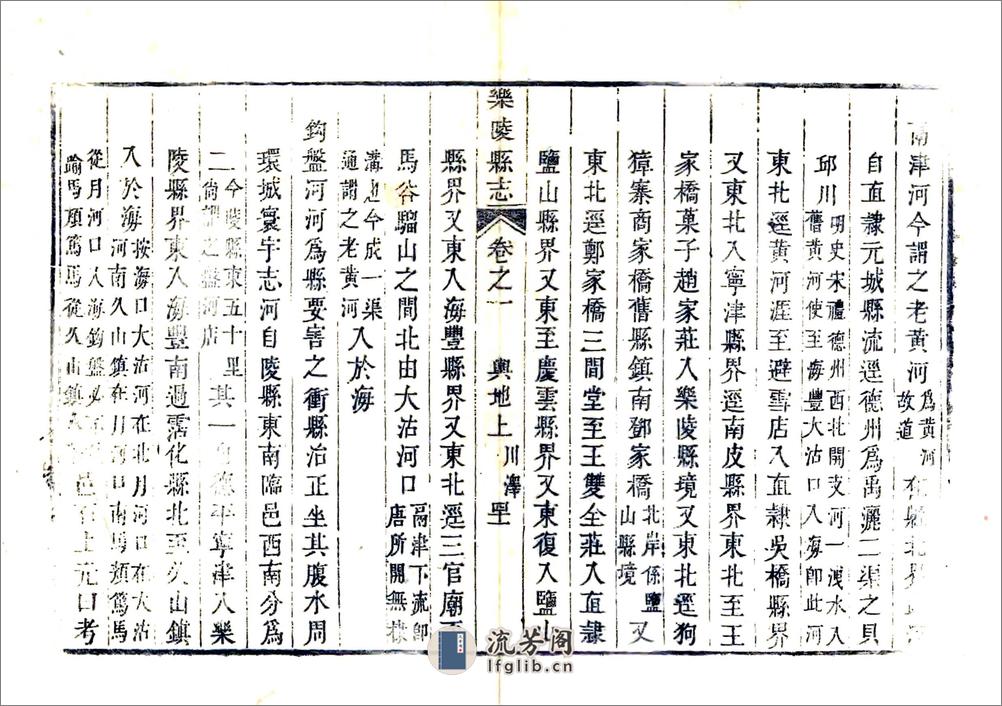 鬲津河今謂之老黃河爲黃河故道在縣北界
自直隸元城縣流逕德州爲禹灑二渠之貝
邱川明史宋禮德州西北開支河一洩水入舊黃河使至海豐大沽口入海卽此河
東北逕黃河涯至避雪店入直隸吳橋縣界
又東北入寧津縣界逕南皮縣界東北至王
家橋菓子趙家莊入樂陵縣境又東北逕狗
獐寨商家橋舊縣鎮南鄧家橋北岸係鹽山縣境又
東北逕鄭家橋三間堂至王雙全莊入直隸
鹽山縣界又東至慶雲縣界又東復入鹽山
樂陵縣志 卷之一 輿地上 川澤 里
縣界又東入海豐縣界又東北逕三官廟至
馬谷騮山之間北由大沽河口鬲津下流卽唐所開無棣
溝也今成一渠通謂之老黃河入於海
鈎盤河河爲縣要害之衝縣治正坐其腹水周
環城寰宇志河自陵縣東南臨邑西南分爲
二今陵縣東五十里尙謂之盤河店其一自德平寧津入樂
陵縣界東入海豐南過霑化縣北至久山鎮
入於海按海口大沽河在北月河口在大沽河南久山鎮在月河口南馬頰篤馬
從月河口入海鈎盤必不踰馬頰篤馬從久山鎮入上元口考